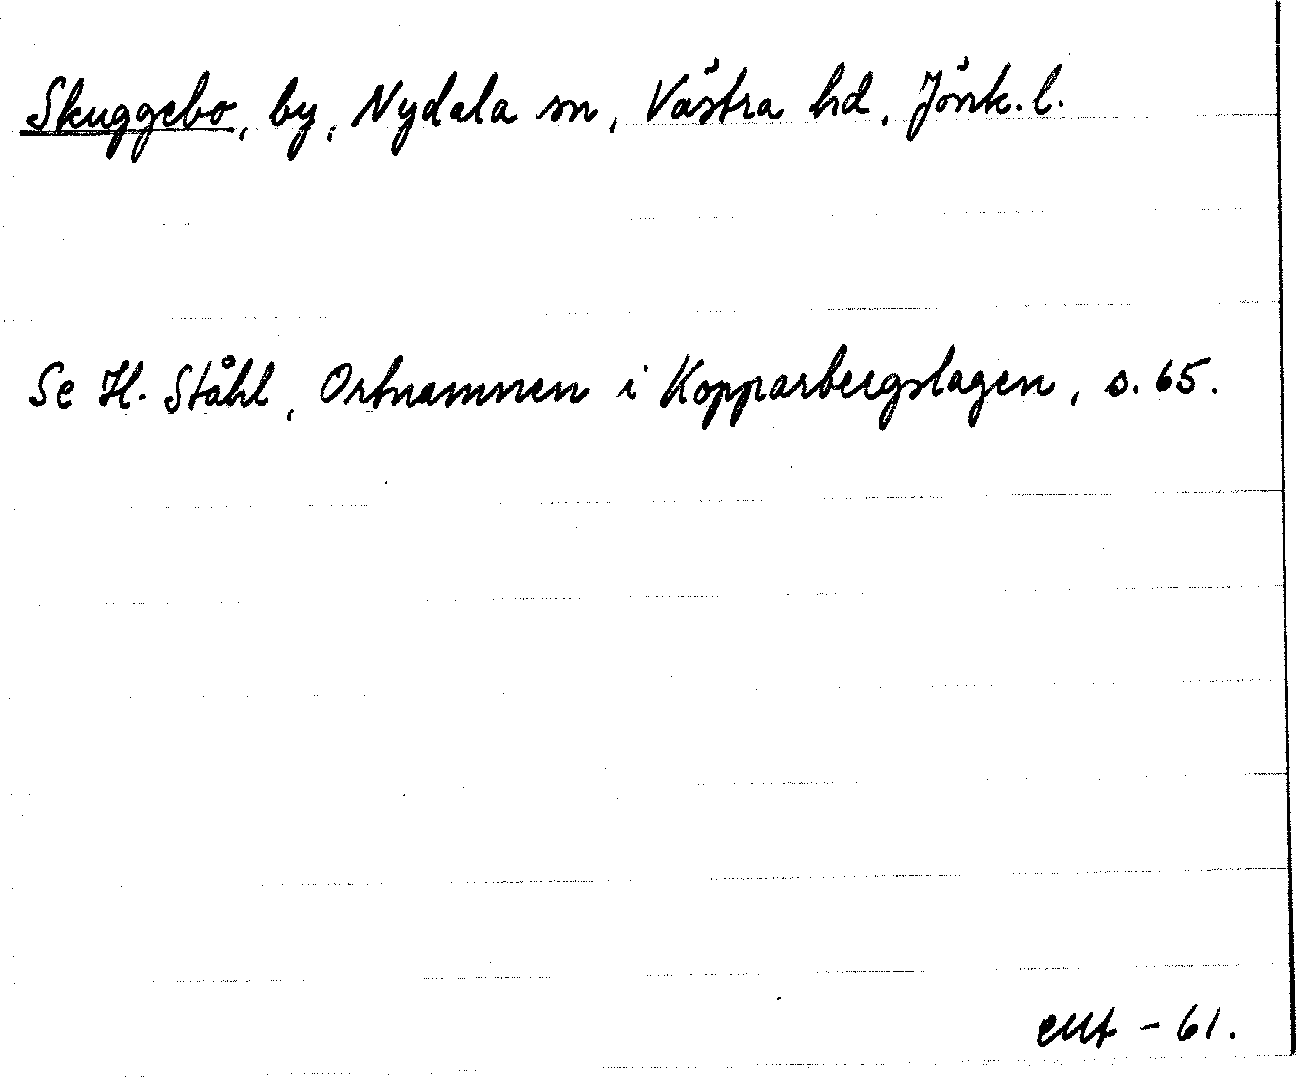 Skuggebo, by, Nydala sn, Västra hd, Jönk. l.
Se H. Ståhl, Ortnamnen i Kopparbergslagen, s. 65.
- 61.